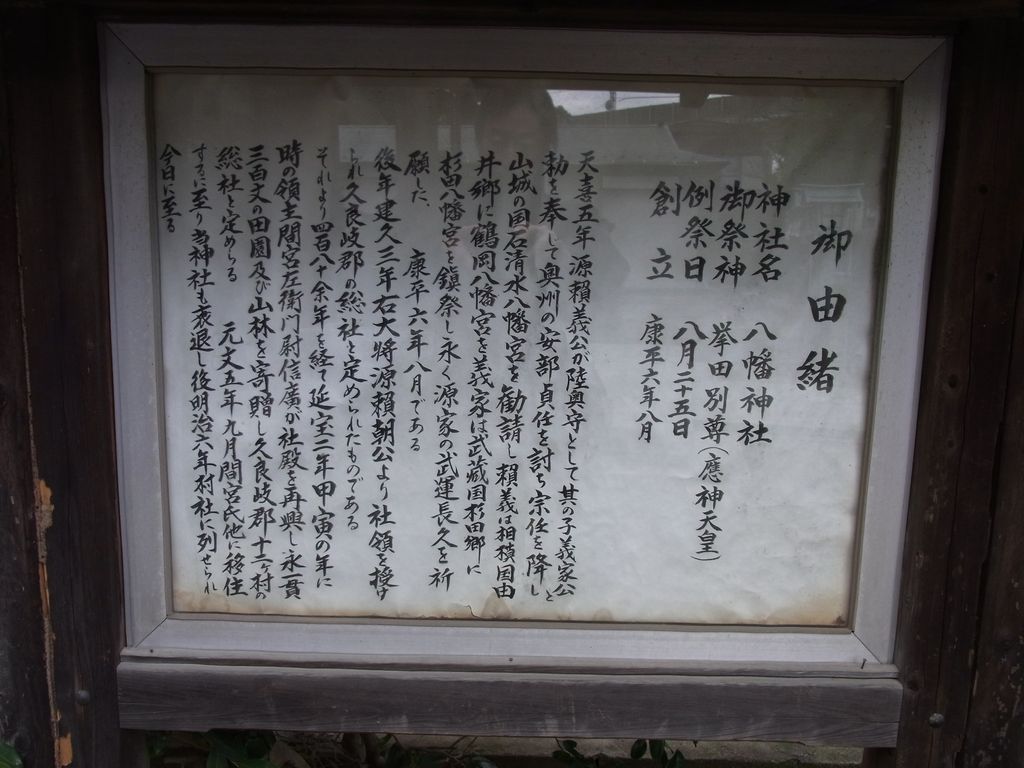 御由緒
神社名 八幡神社
御祭神 挙田別尊(應神天皇)
例祭日 八月二十五日
創立 康平六年八月
天喜五年源賴義公が陸奥守として其の子義家公と
勅を奉して奥州の安部貞任を討ち宗任を降し
山城の国石清水八幡宮を勧請し賴義は相模国由
井郷に鶴岡八幡宮を義家は武蔵国杉田郷に
杉田八幡宮を鎮祭し永く源家の武運長久を祈
願した 康平六年八月である
後年建久三年右大将源賴朝公より社領を授け
られ久良岐郡の総社と定められたものである
それより四百八十余年を経て延宝二年甲寅の年に
時の領主間宮左衛門尉信廣が社殿を再興し永一貫
三百文の田園及び山林を寄贈し久良岐郡十二ヶ村の
総社と定めらる 元文五年九月間宮氏他に移住
するに至り当神社も衰退し後明治六年村社に列せられ
今日に至る